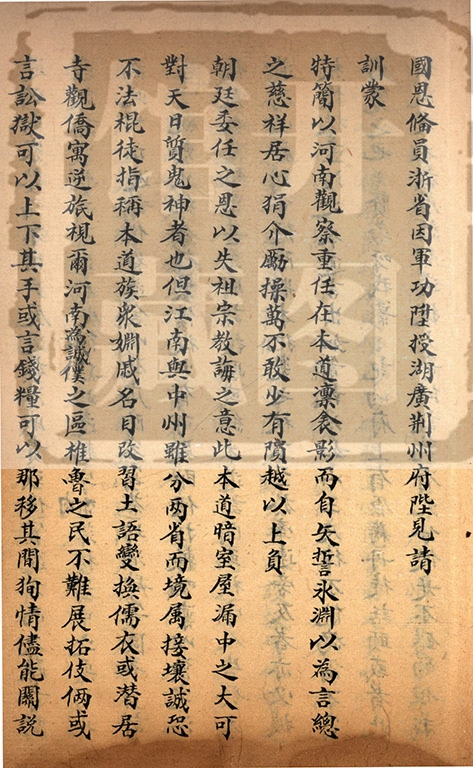 國恩俻員浙省因軍功陞授湖廣荆州府陛見請
訓蒙
特簡以河南觀察重任在本道凛衾影而自矢誓氷淵以為言總
之慈祥居心狷介勵操萬不敢少有隕越以上負
朝廷委任之恩以失祖宗教誨之意此本道暗室屋漏中之大可
對天日質鬼神者也但江南與中州雖分两省而境属接壤誠恐
不法棍徒指稱本道族衆姻戚名目改習土語變換儒衣或潜居
寺觀僑寓逆旅視爾河南為誠僕之區椎魯之民不難展拓伎俩或
言訟獄可以上下其手或言錢糧可以那移其間狥情儘能關説
開圖
館藏